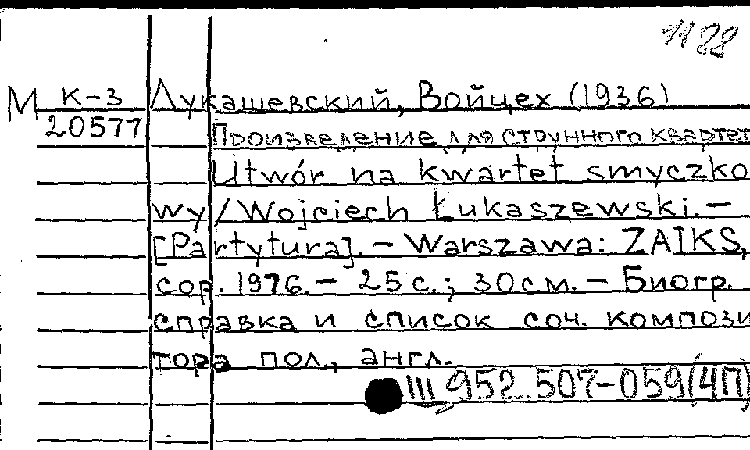 1188
М К-3 Лукашевский, Войцех (1936)
20577 Произведение для струнного квартет
Utwór na kwartet smyczko
wy / Wojciech Łukaszewski. –
[Partytura]. – Warszawa: ZAIKS,
cop. 1976. – 25 с.; 30 см. – Биогр.
справка и список соч. компози
тора пол., англ.
III 952.507-059(4П)